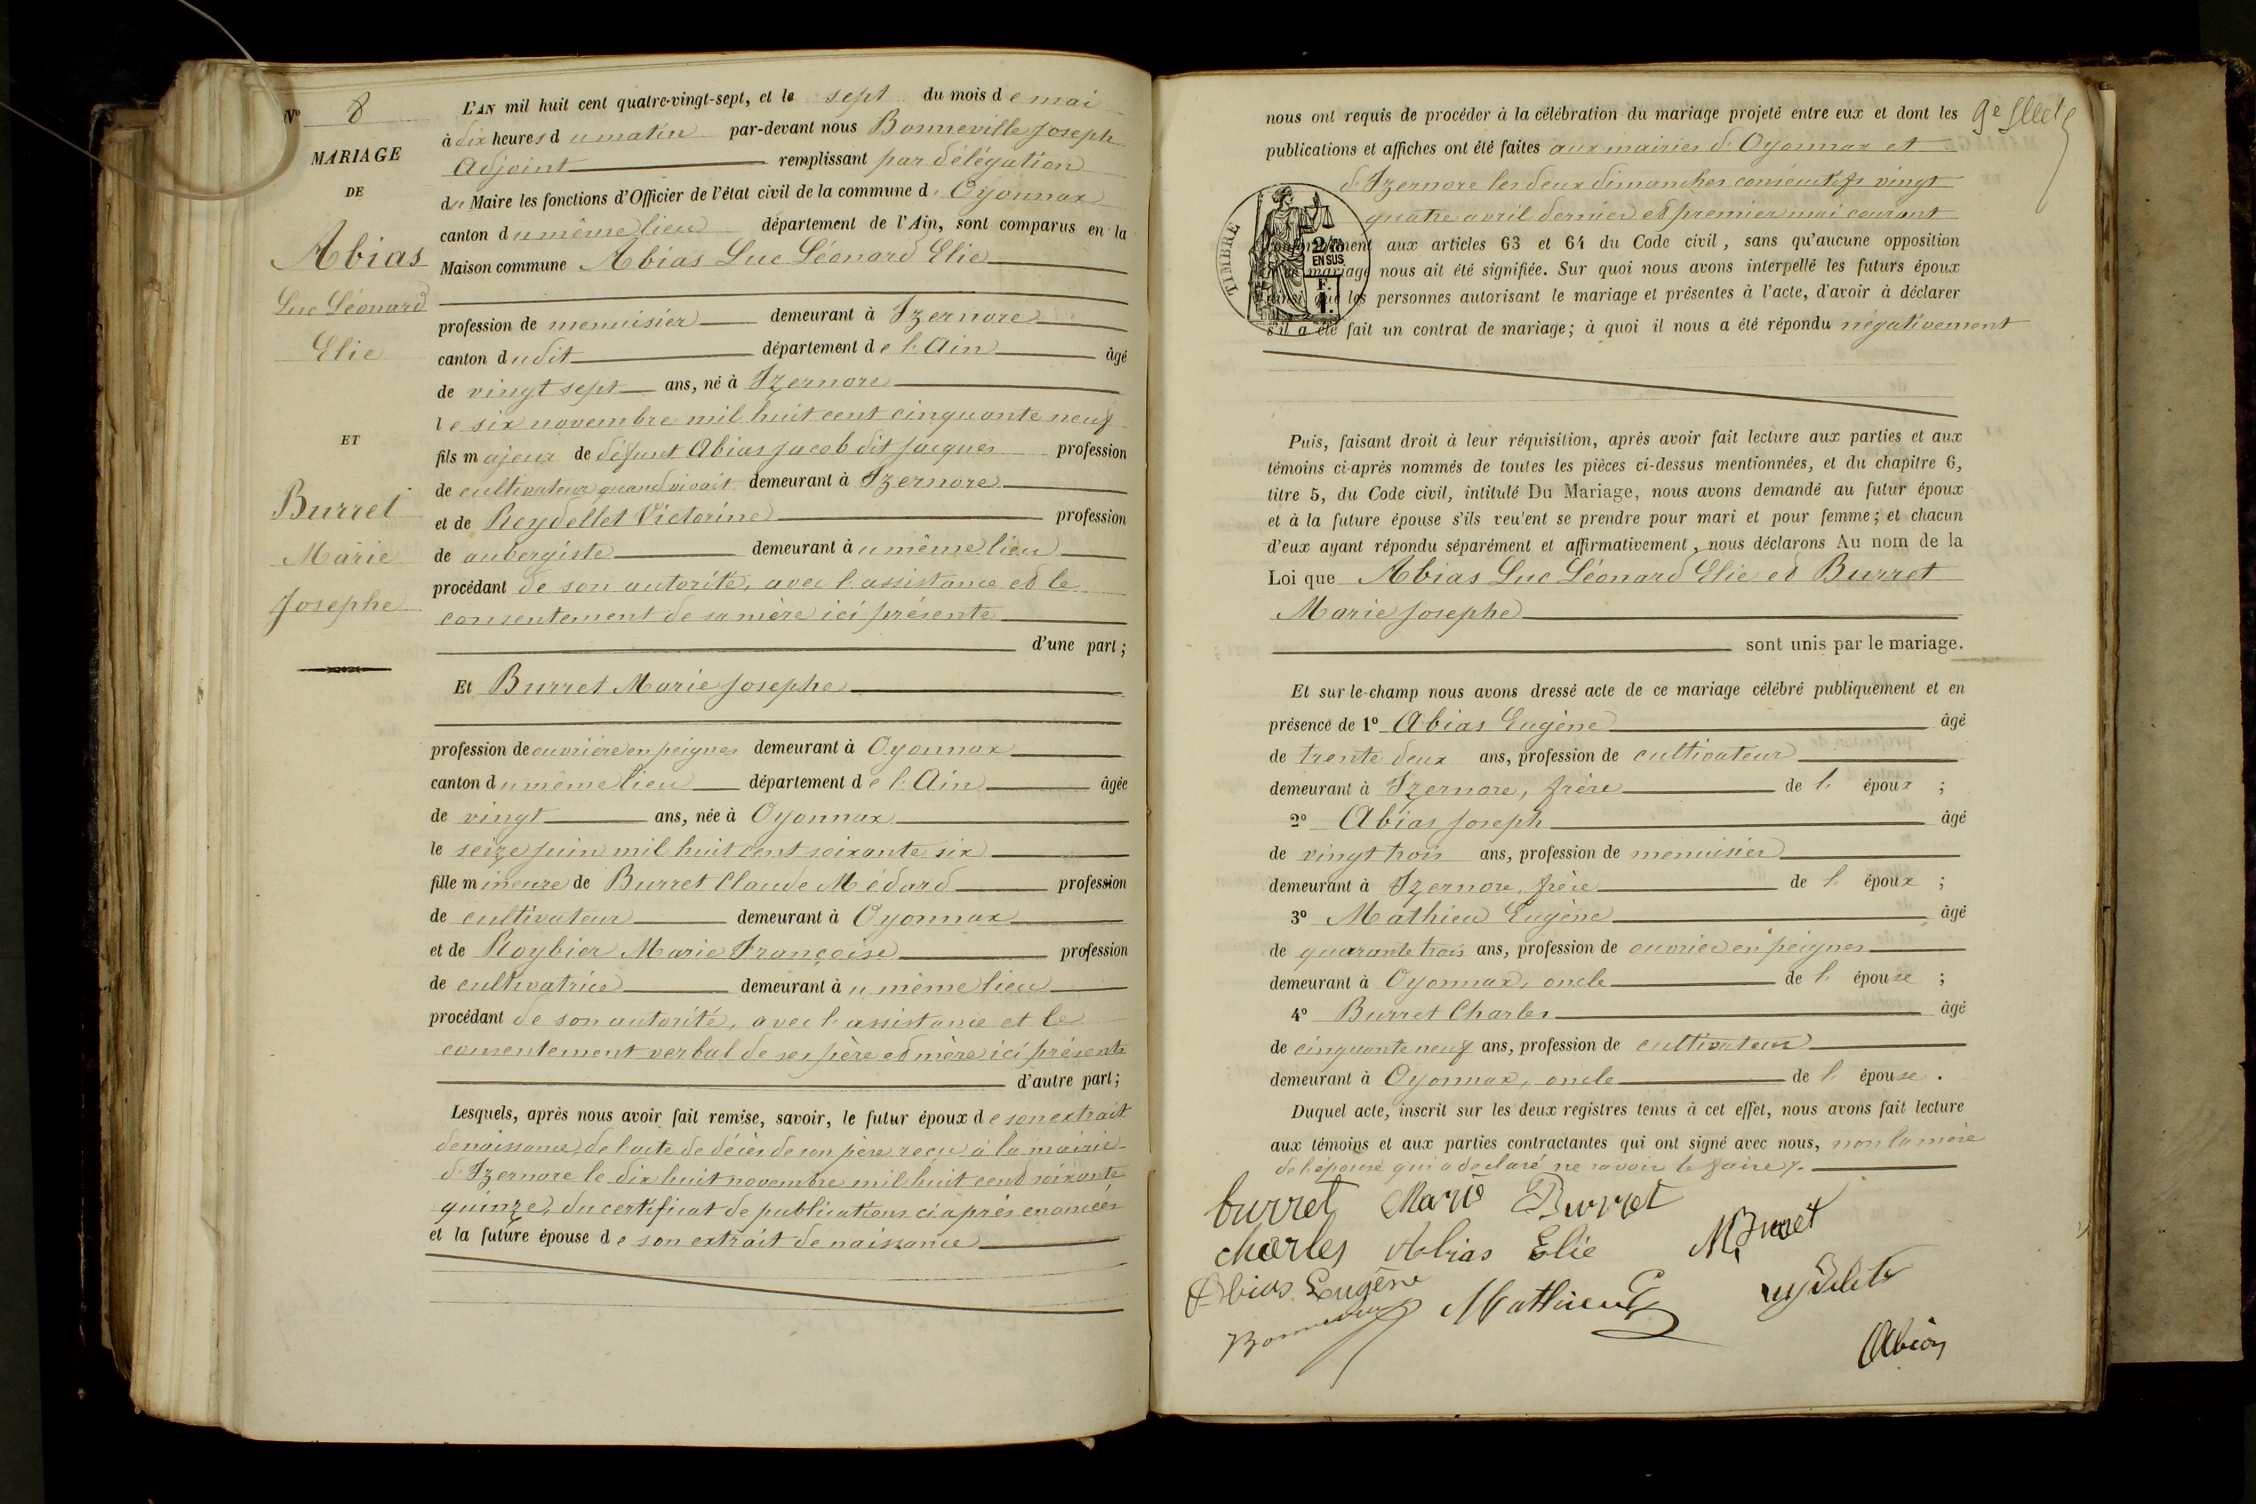 N° 8
MARIAGE
DE
Abias
Luc Léonard
Elie
ET
Burret
Marie
Josephe
L'AN mil huit cent quatre-vingt-sept, et le sept du mois de mai
à dix heures du matin par-devant nous Bonneville Joseph
Adjoint remplissant par délégation
du Maire les fonctions d'Officier de l'état civil de la commune d'Oyonnax
canton du même lieu département de l'Ain, sont comparus en la
Maison commune Abias Luc Léonard Elie
profession de menuisier demeurant à Izernore
canton dudit département de l'Ain âgé
de vingt sept ans, né à Izernore
le six novembre mil huit cent cinquante neuf
fils majeur de défunt Abias Jacob dit Jacques profession
de cultivateur quand vivait demeurant à Izernore
et de Reydellet Victorine profession
de aubergiste demeurant au même lieu
procédant de son autorité, avec l'assistance et le
consentement de sa mère ici présente
d'une part;
Et Burret Marie Josephe
profession de ouvrière en peignes demeurant à Oyonnax
canton du même lieu département de l'Ain âgée
de vingt ans, née à Oyonnax
le seize juin mil huit cent soixante six
fille mineure de Burret Claude Médard profession
de cultivateur demeurant à Oyonnax
et de Roybier Marie Françoise profession
de cultivatrice demeurant au même lieu
procédant de son autorité, avec l'assistance et le
consentement verbal de ses père et mère ici présents
d'autre part;
Lesquels, après nous avoir fait remise, savoir, le futur époux de son extrait
de naissance, de l'acte de décès de son père reçu à la mairie
d'Izernore le dix huit novembre mil huit cent soixante
quinze, du certificat de publications ci après énoncées
et la future épouse de son extrait de naissance
nous ont requis de procéder à la célébration du mariage projeté entre eux et dont les
publications et affiches ont été faites aux mairies d'Oyonnax et
d'Izernore les deux dimanches consécutifs vingt
quatre avril dernier et premier mai courant
conformément aux articles 63 et 64 du Code civil, sans qu'aucune opposition
mariage nous ait été signifiée. Sur quoi nous avons interpellé les futurs époux
ainsi que les personnes autorisant le mariage et présentes à l'acte, d'avoir à déclarer
s'il a été fait un contrat de mariage; à quoi il nous a été répondu négativement
TIMBRE
EN SUS
Puis, faisant droit à leur réquisition, après avoir fait lecture aux parties et aux
témoins ci-après nommés de toutes les pièces ci-dessus mentionnées, et du chapitre 6,
titre 5, du Code civil, intitulé Du Mariage, nous avons demandé au futur époux
et à la future épouse s'ils veulent se prendre pour mari et pour femme; et chacun
d'eux ayant répondu séparément et affirmativement, nous déclarons Au nom de la
Loi que Abias Luc Léonard Elie et Burret
Marie Josephe
sont unis par le mariage.
Et sur-le-champ nous avons dressé acte de ce mariage célébré publiquement et en
présence de 1° Abias Eugène âgé
de trente deux ans, profession de cultivateur
demeurant à Izernore, frère de l'époux ;
2° Abias Joseph âgé
de vingt trois ans, profession de menuisier
demeurant à Izernore, frère de l'époux ;
3° Mathieu Eugène âgé
de quarante trois ans, profession de ouvrier en peignes
demeurant à Oyonnax, oncle de l'épouse ;
4° Burret Charles âgé
de cinquante neuf ans, profession de cultivateur
demeurant à Oyonnax, oncle de l'épouse .
Duquel acte, inscrit sur les deux registres tenus à cet effet, nous avons fait lecture
aux témoins et aux parties contractantes qui ont signé avec nous, non la mère
de l'épouse qui a déclaré ne savoir le faire
burret Marie Burret
charles Abias Elie M Burret
Abias Eugène
Mathieu E
Abias